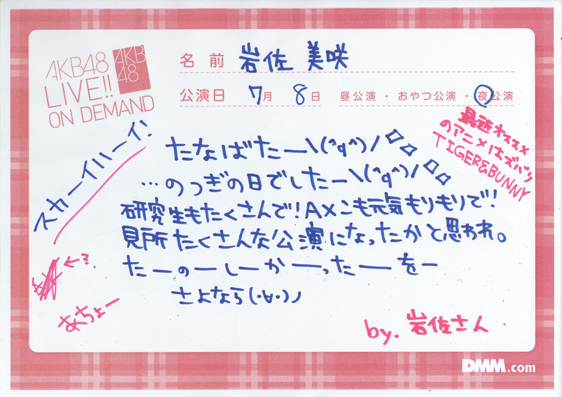 AKB48
LIVE!!
ON DEMAND
AKB
48
名前 岩佐美咲
公演日 7月8日 昼公演・おやつ公演・夜公演
スカーイハーイ!
最近オススメ
のアニメはズバリ
TIGER&BUNNY
たなばたー\(^q^)/
…のつぎの日でしたー\(^q^)/
研究生もたくさんで!Aメンも元気もりもりで!
見所たくさんな公演になったかと思われ。
たーのーしーかーったーをー
さよなら(・∀・)ノ
←?
あちょー
by. 岩佐さん
DMM.com